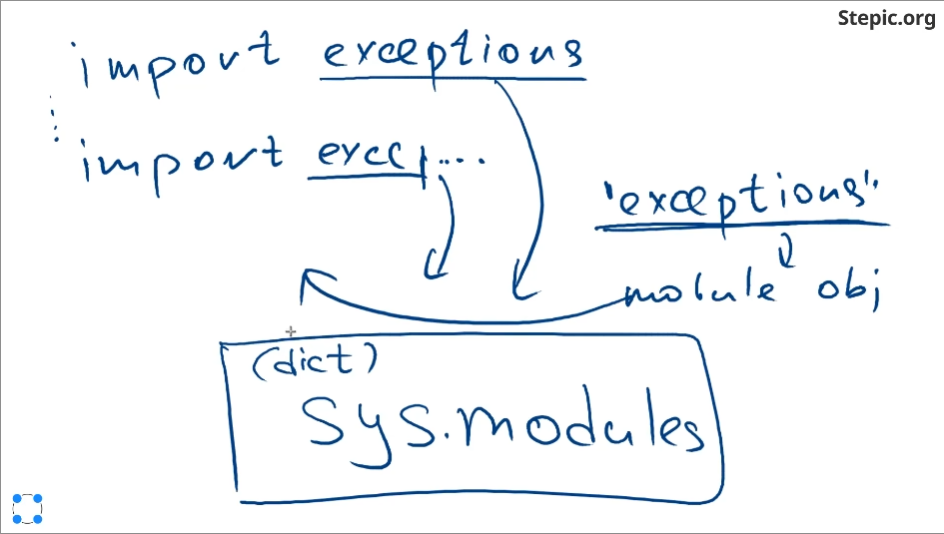 Stepic.org
import exceptions
import excep...
'exceptions':
module obj
(dict)
sys.modules